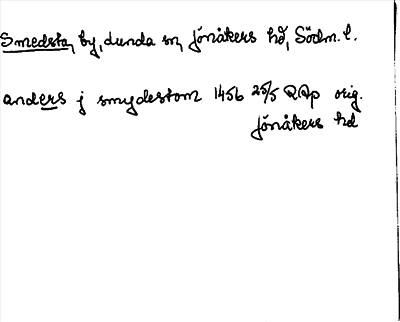 Smedsta, by, Lunda sn, Jönåkers hd, Södm. l.
anders j smydestom 1456 25/5 RAp orig.
Jönåkers hd